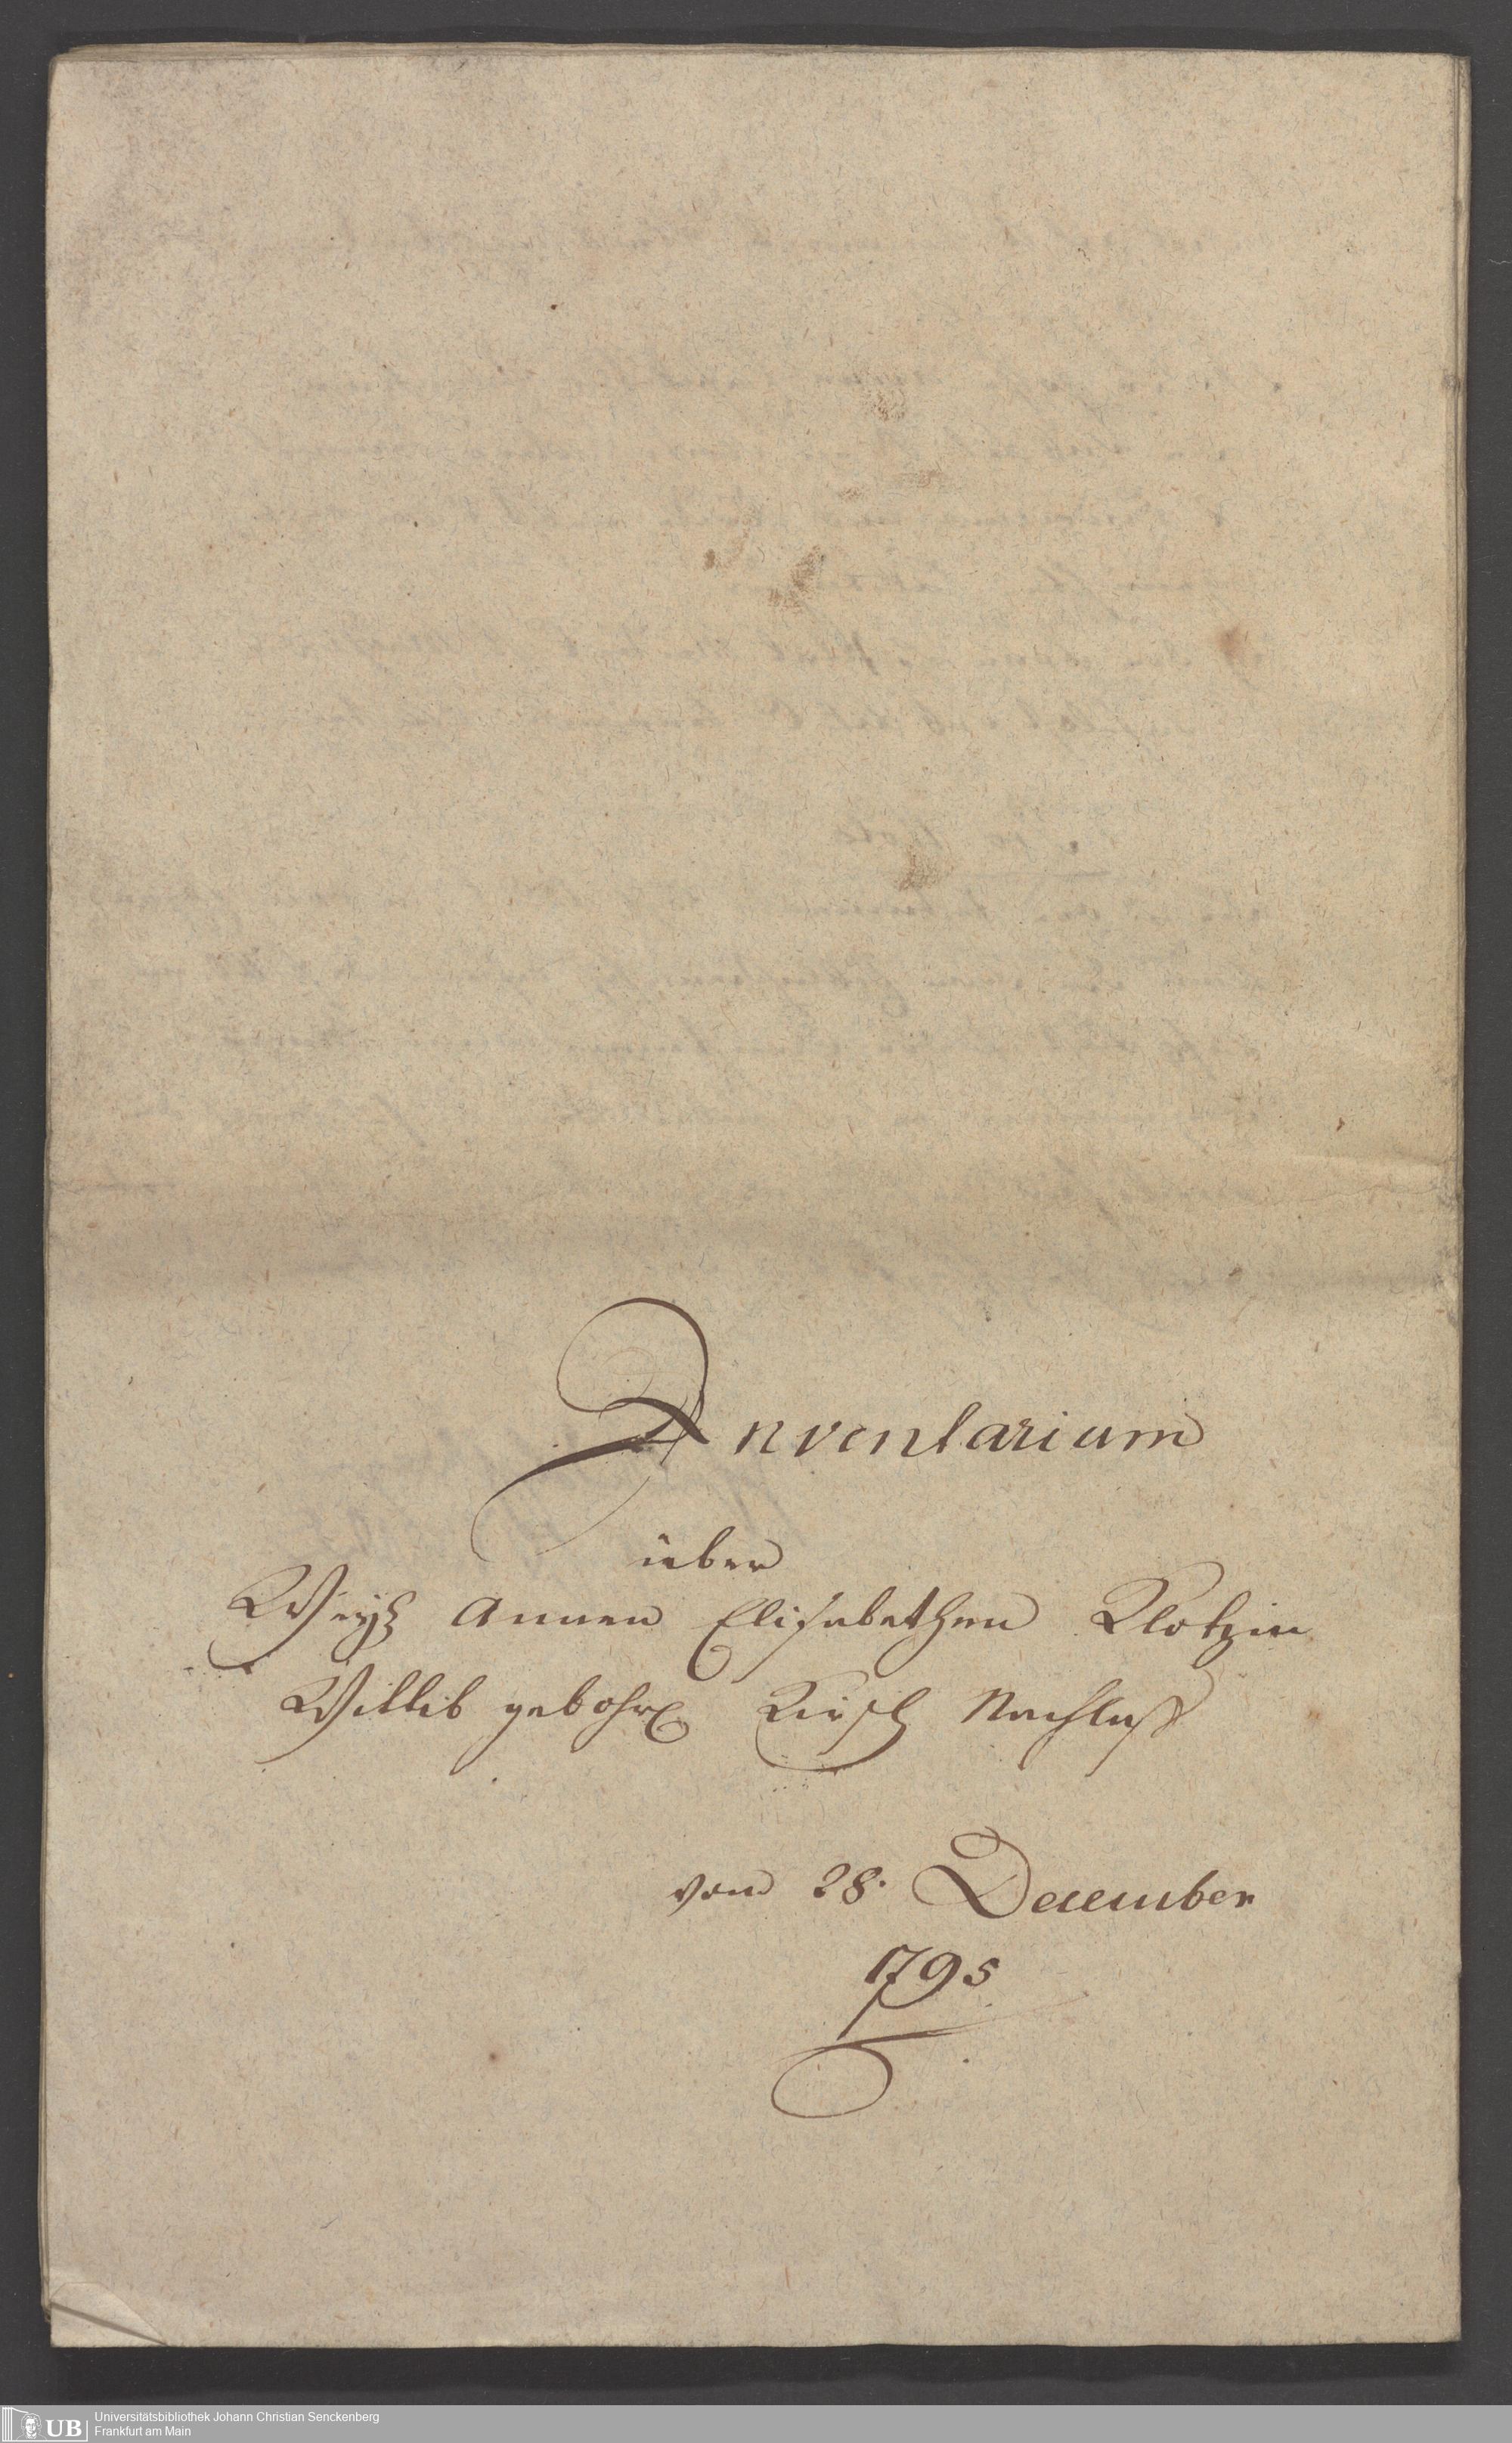 Inventarium
über
Weyl. Annen Elisabethen Klotzin
Wittib gebohr. Kirsch Nachlaß
vom 28. December
1795
UB
Universitätsbibliothek Johann Christian Senckenberg
Frankfurt am Main